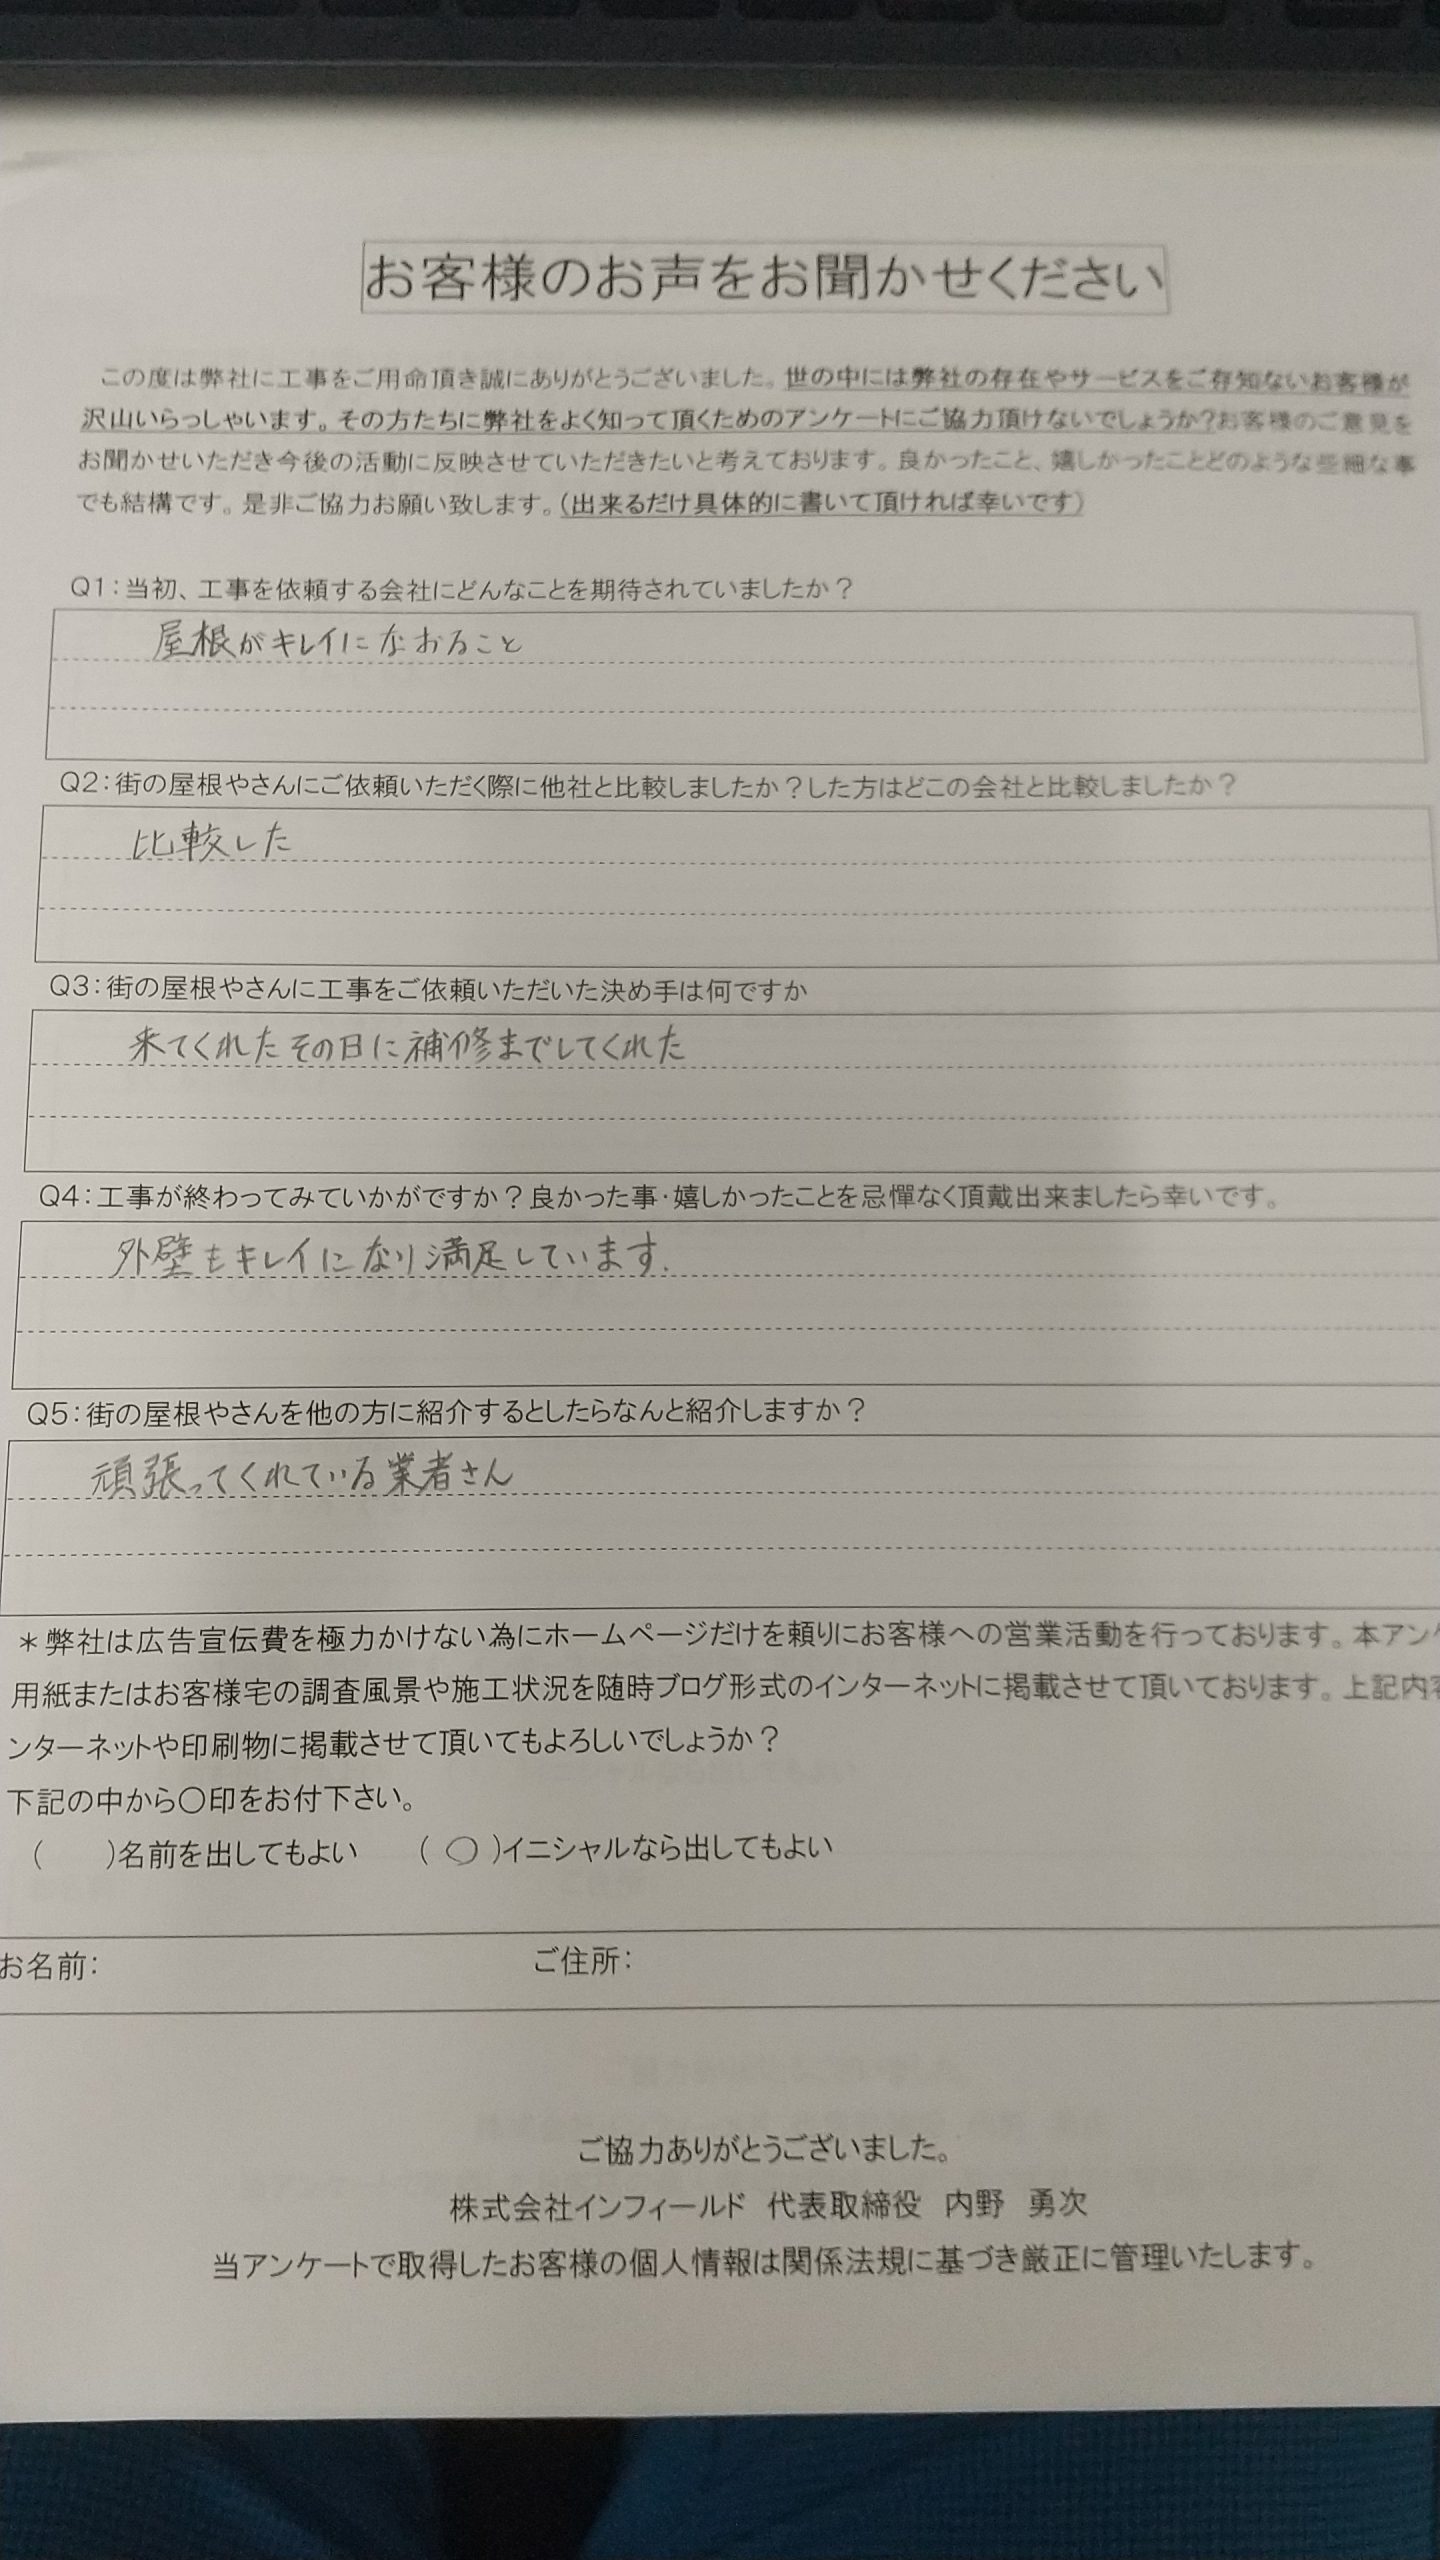 お客様のお声をお聞かせください
この度は弊社に工事をご用命頂き誠にありがとうございました。世の中には弊社の存在やサービスをご存知ないお客様が
沢山いらっしゃいます。その方たちに弊社をよく知って頂くためのアンケートにご協力頂けないでしょうか?お客様のご意見を
お聞かせいただき今後の活動に反映させていただきたいと考えております。良かったこと、嬉しかったことどのような些細な事
でも結構です。是非ご協力お願い致します。(出来るだけ具体的に書いて頂ければ幸いです)
Q1:当初、工事を依頼する会社にどんなことを期待されていましたか？
屋根がキレイになおること
Q2:街の屋根やさんにご依頼いただく際に他社と比較しましたか？した方はどこの会社と比較しましたか？
比較した
Q3:街の屋根やさんに工事をご依頼いただいた決め手は何ですか
来てくれたその日に補修までしてくれた
Q4:工事が終わってみていかがですか？良かった事･嬉しかったことを忌憚なく頂戴出来ましたら幸いです。
外壁もキレイになり満足しています.
Q5:街の屋根やさんを他の方に紹介するとしたらなんと紹介しますか？
頑張ってくれている業者さん
＊弊社は広告宣伝費を極力かけない為にホームページだけを頼りにお客様への営業活動を行っております。本アン
用紙またはお客様宅の調査風景や施工状況を随時ブログ形式のインターネットに掲載させて頂いております。上記内
ンターネットや印刷物に掲載させて頂いてもよろしいでしょうか？
下記の中から〇印をお付下さい。
(　　)名前を出してもよい　　(　○　)イニシャルなら出してもよい
お名前:　　ご住所:
ご協力ありがとうございました。
株式会社インフィールド　代表取締役　内野　勇次
当アンケートで取得したお客様の個人情報は関係法規に基づき厳正に管理いたします。